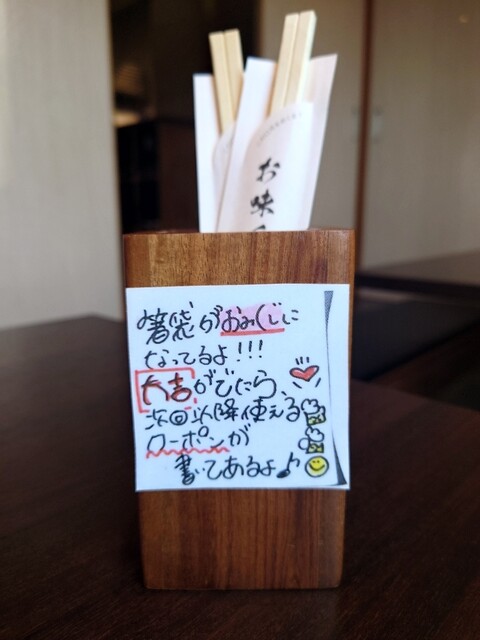 お味
箸袋がおみくじに
なってるよ!!!
大吉がでたら、
次回以降使える
クーポンが
書いてあるよ♪